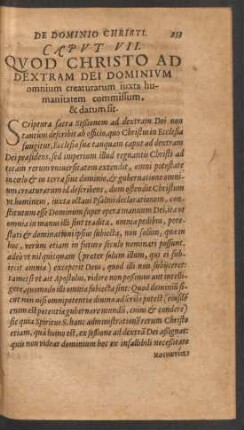 DE DOMINIO CHRISTI.
CAPVT VII.
QVOD CHRISTO AD
DEXTRAM DEI DOMINIVM
omnium creaturarum iuxta hu-
manitatem commissum,
& datum sit.
Scriptura sacra sessionem ad dextram Dei non
tantùm describit ab officio, quo Christus in Ecclesia
fungitur, Ecclesiæ suæ tanquam caput ad dextram
Dei præsidens, sed imperium illud regnantis Christi ad
etiam rerum vniuersitatem extendit, omni potentiæ
in cœlo & in terra siue dominio, & gubernationi omni-
um creaturarum id describens, dum ostendit Christum
vt hominem, iuxta octaui Psalmi declarationem, con-
stitutum esse Dominum super opera manuum Dei, ita vt
omnia in manum illi sint tradita, omnia pedibus, pote-
stati & dominationi ipsius subiecta, non solùm, quæ in
hoc, verùm etiam in futuro seculo nominari possunt,
adeò vt nil quicquam (præter solum illum, qui ei sub-
iecit omnia) exceperit Deus, quod illi non subiecerit:
tametsi vt ait Apostolus, videre non possumus aut intelli-
gere, quomodo illi omnia subiecta sint. Quod dominium si-
cut non nisi omnipotentiæ diuinæ adscribi potest (eiusdē
enim est potentia gubernare mundū, cuius & condere)
sic quia Spiritus S. hanc administrationē rerum Christo
etiam, quà homo est, ex sessione ad dextrā Dei assignat:
quis non videat dominium hoc ex infallibili necessitate